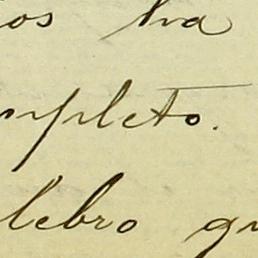 os ha
mpleto.
lebro qu